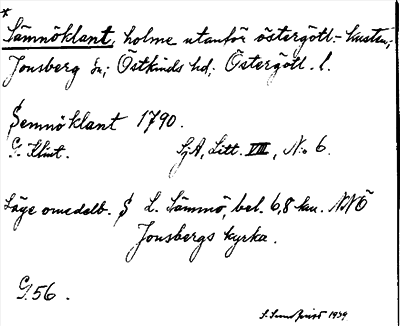 *
Sämnöklant, holme utanför östergötl.-kusten;
Jonsberg sn; Östkinds hd; Östergötl. l.
Semnöklant 1790.
G. Klint. SjA, Litt. VIII, No 6.
Läge omedelb. S L. Sämnö, bel. 6,8 km. NNÖ
Jonsbergs kyrka.
G. 56.
1939